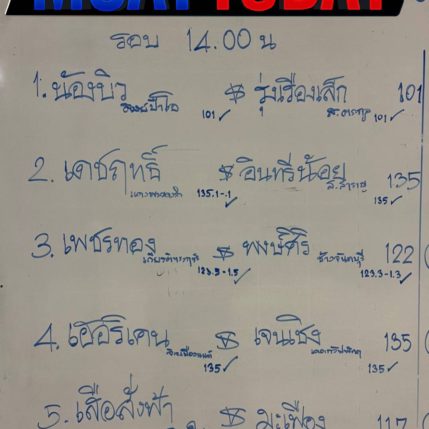 MUAY TODAY
รอบ 14.00 น
1. น้องบิว $ รุ่งเรืองเล็ก 101
101 ✓ 101 ✓
2. เดชฤทธิ์ $ อินทรีน้อย 135
135.1-.1 ✓ ส.สำราญ 135 ✓
3. เพชรทอง $ พงษ์ศิริ 122
ช้างจันทบุรี
123.9-1.5 ✓ 123.3-1.3 ✓
4. เฮอริเคน $ เจนเชิง 135
135 ✓ 135 ✓
5. เสือสั่งฟ้า $ มะเฟือง 117